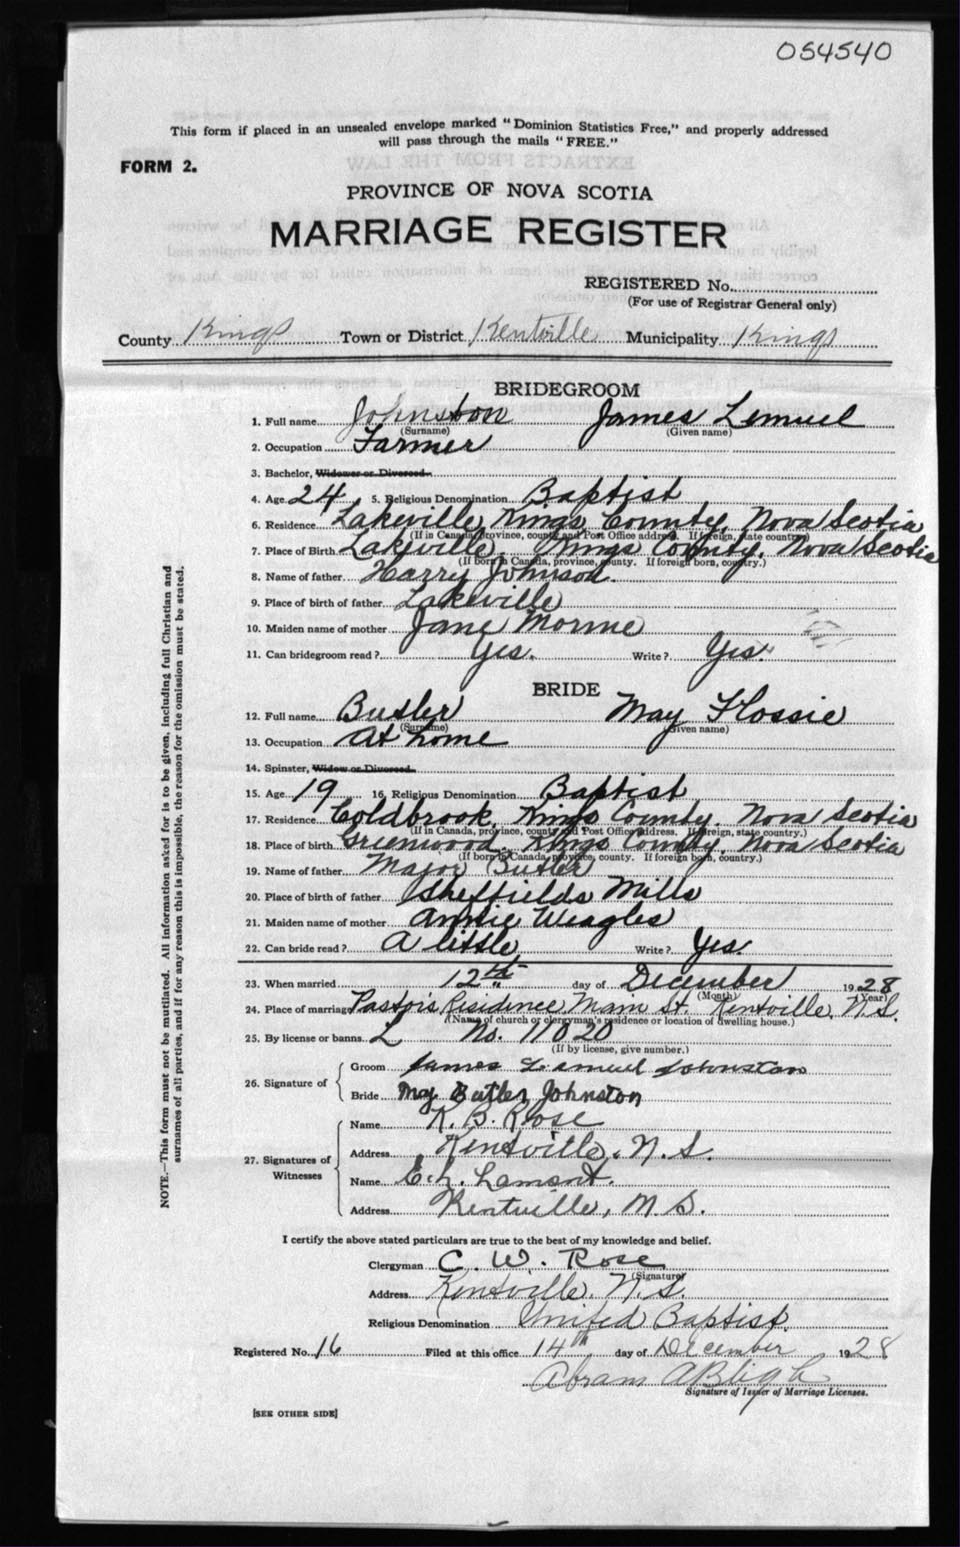 054540
This form if placed in an unsealed envelope marked "Dominion Statistics Free," and properly addressed
will pass through the mails "FREE."
FORM 2.
PROVINCE OF NOVA SCOTIA
MARRIAGE REGISTER
REGISTERED No.
(For use of Registrar General only)
County Kings Town or District Kentville Municipality Kings
BRIDEGROOM
1. Full name Johnston James Lemuel
(Surname) (Given name)
2. Occupation Farmer
3. Bachelor, Widower or Divorced
4. Age 24 5. Religious Denomination Baptist
6. Residence Lakeville, Kings County, Nova Scotia
(If in Canada, province, county and Post Office address. If foreign, state country.)
7. Place of Birth Lakeville, Kings County, Nova Scotia
(If born in Canada, province, county. If foreign born, country.)
8. Name of father Harry Johnson.
9. Place of birth of father Lakeville
10. Maiden name of mother Jane
11. Can bridegroom read? Yes. Write? Yes.
BRIDE
12. Full name Butler May Flossie
(Surname) (Given name)
13. Occupation At home
14. Spinster, Widow or Divorced
15. Age 19 16. Religious Denomination Baptist
17. Residence Coldbrook, Kings County, Nova Scotia
(If in Canada, province, county and Post Office address. If foreign, state country.)
18. Place of birth Greenwood, Kings County, Nova Scotia
(If born in Canada, province, county. If foreign born, country.)
19. Name of father Major Butler
20. Place of birth of father Sheffields Mills
21. Maiden name of mother Annie Weagles
22. Can bride read? A little Write? Yes.
23. When married 12th day of December 1928
(Month) (Year)
24. Place of marriage Pastor's Residence Main St. Kentville, N.S.
(Name of church or clergyman's residence or location of dwelling house.)
25. By license or banns L No. 11020
(If by license, give number.)
26. Signature of
Groom James Lemuel Johnston
Bride May Butler Johnston
27. Signatures of Witnesses
Name K. B. Rose
Address Kentville, N.S.
Name Lamont.
Address Kentville, N.S.
I certify the above stated particulars are true to the best of my knowledge and belief.
Clergyman C. W. Rose
(Signature)
Address Kentville, N.S.
Religious Denomination United Baptist.
Registered No. 16 Filed at this office 14th day of December 1928
Abram A Bligh
Signature of Issuer of Marriage Licenses.
[SEE OTHER SIDE]
NOTE.—This form must not be mutilated. All information asked for is to be given, including full Christian and
surnames of all parties, and if for any reason this is impossible, the reason for the omission must be stated.